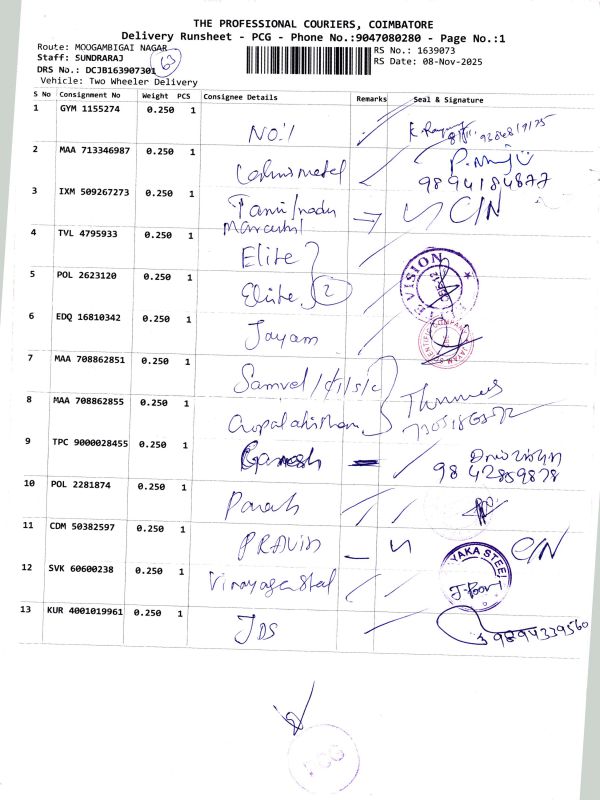 THE PROFESSIONAL COURIERS, COIMBATORE
Delivery Runsheet - PCG - Phone No.:9047080280 - Page No.:1
Route: MOOGAMBIGAI NAGAR
RS No.: 1639073
Staff: SUNDRARAJ
63
RS Date: 08-Nov-2025
DRS No.: DCJB163907301
Vehicle: Two Wheeler Delivery
S No Consignment No Weight PCS Consignee Details Remarks Seal & Signature
1 GYM 1155274 0.250 1 No.1
2 MAA 713346987 0.250 1
9894184877
3 IXM 509267273 0.250 1 Tamilnadu C/N
4 TVL 4795933 0.250 1 Elite
5 POL 2623120 0.250 1 Elite 2
E VISION
6 EDQ 16810342 0.250 1 Jayam
7 MAA 708862851 0.250 1 Samuel
8 MAA 708862855 0.250 1 Gopalakrishnan
9 TPC 9000028455 0.250 1 Ganesh
9842859878
10 POL 2281874 0.250 1
11 CDM 50382597 0.250 1 PRAVIN C/N
12 SVK 60600238 0.250 1 Vinayaga Steel
YAKA STEE
13 KUR 4001019961 0.250 1 JDS 9894339560
PCG